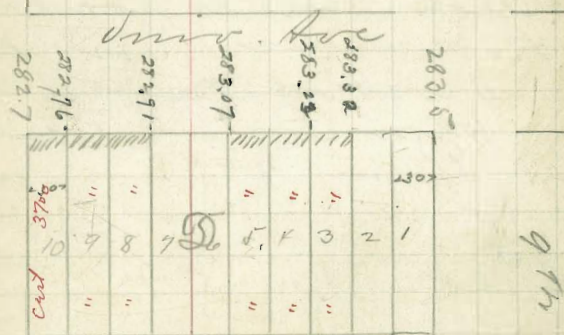 Univ. Ave
282.7 282.76 282.91 283.07 283.23 283.32 283.5
3700 " " " " " <30>
10 9 8 7 6 5 4 3 2 1
55
curt " " " " "
9th